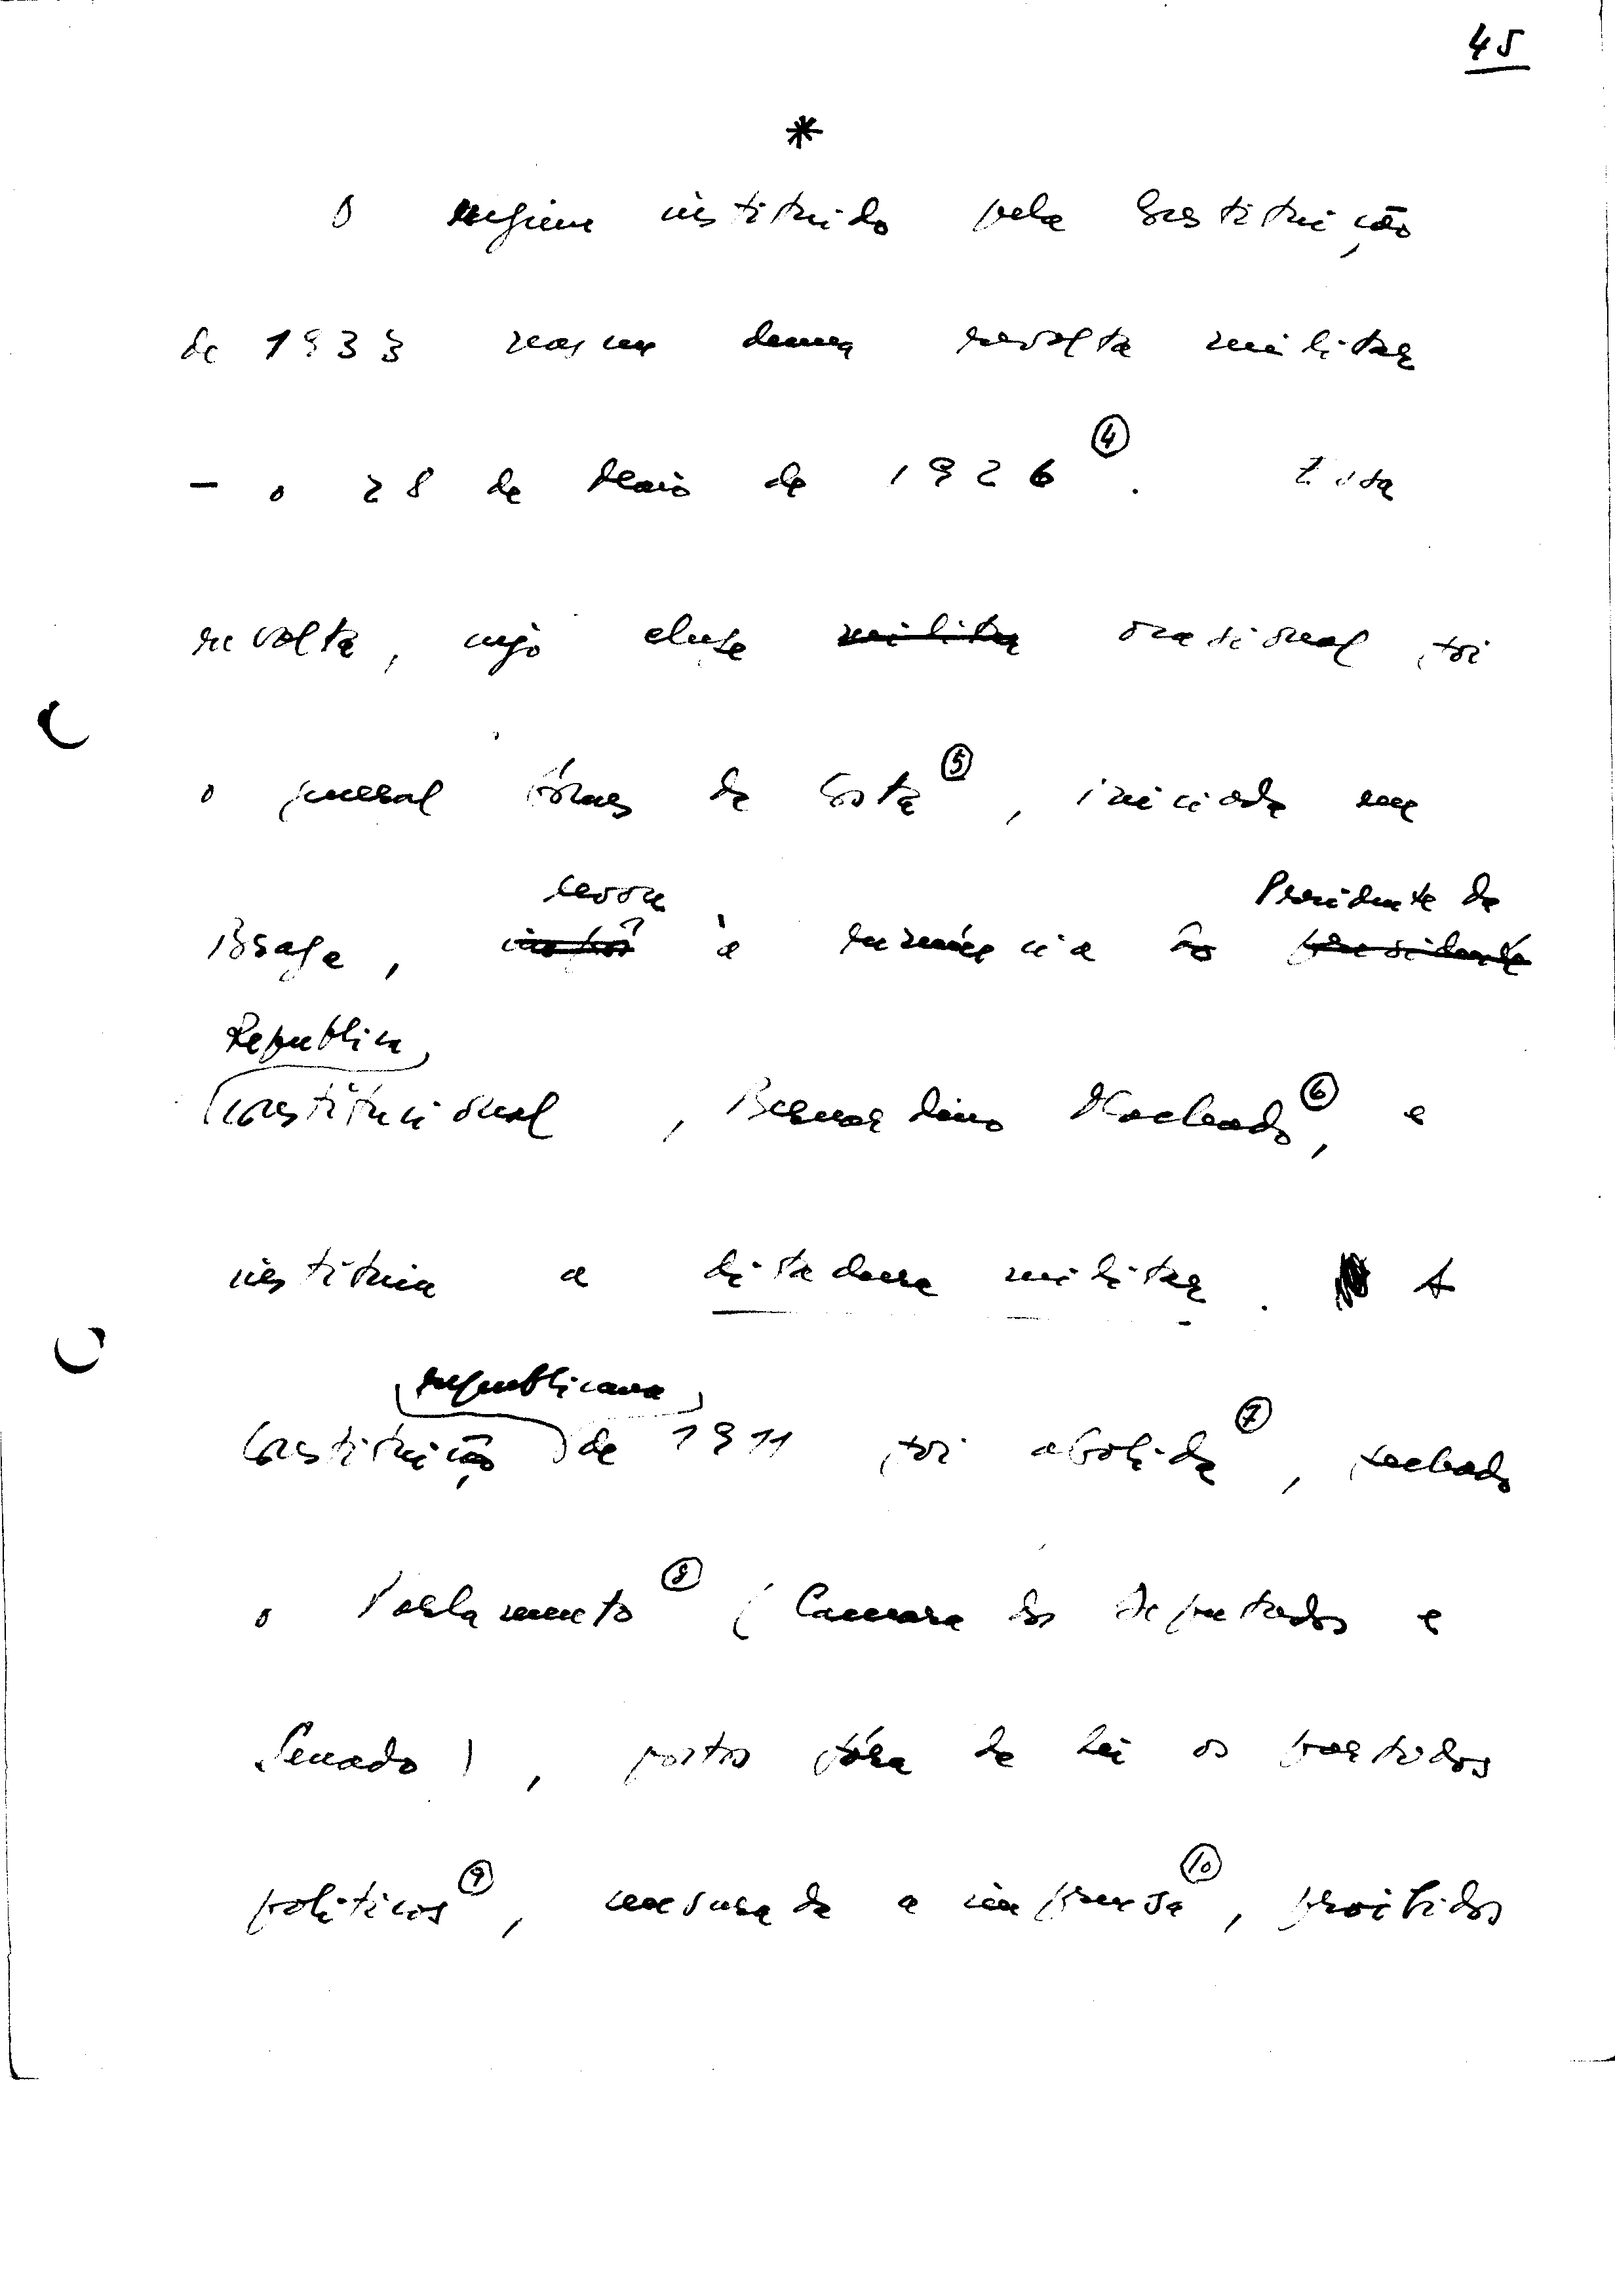 45
*
O regime instituido pela Constituição
de 1933 nasceu duma revolta militar
- o 28 de Maio de 1926 ④. Esta
revolta, cujo chefe militar ocasional foi
o general Gomes da Costa ⑤, iniciada em
levou Presidente da
Braga, à renúncia do presidente
Republica
constitucional, Bernardino Machado ⑥, e
instituiu a ditadura militar. A
republicana
Constituição de 1911 foi abolida ⑦, fechado
o Parlamento ⑧ (Camara dos Deputados e
Senado), postos fóra da lei os partidos
politicos ⑨, censurada a imprensa ⑩, proibidos